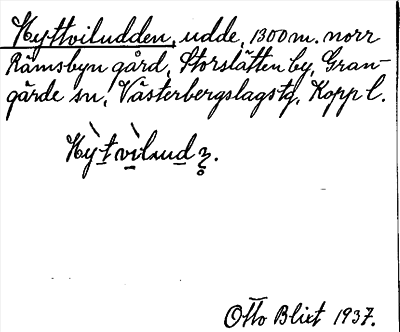 Hyttviludden, udde, 1300 m. norr
Rämsbyn gård, Storslätten by, Gran-
gärde sn, Västerbergslags tg, Kopp l.
Otto Blixt 1937.